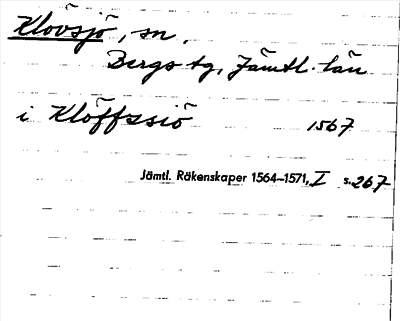 Klövsjö, sn.
Bergs tg, Jämtl. län
i Klöffssiö 1567
Jämtl. Räkenskaper 1564–1571, I s. 267